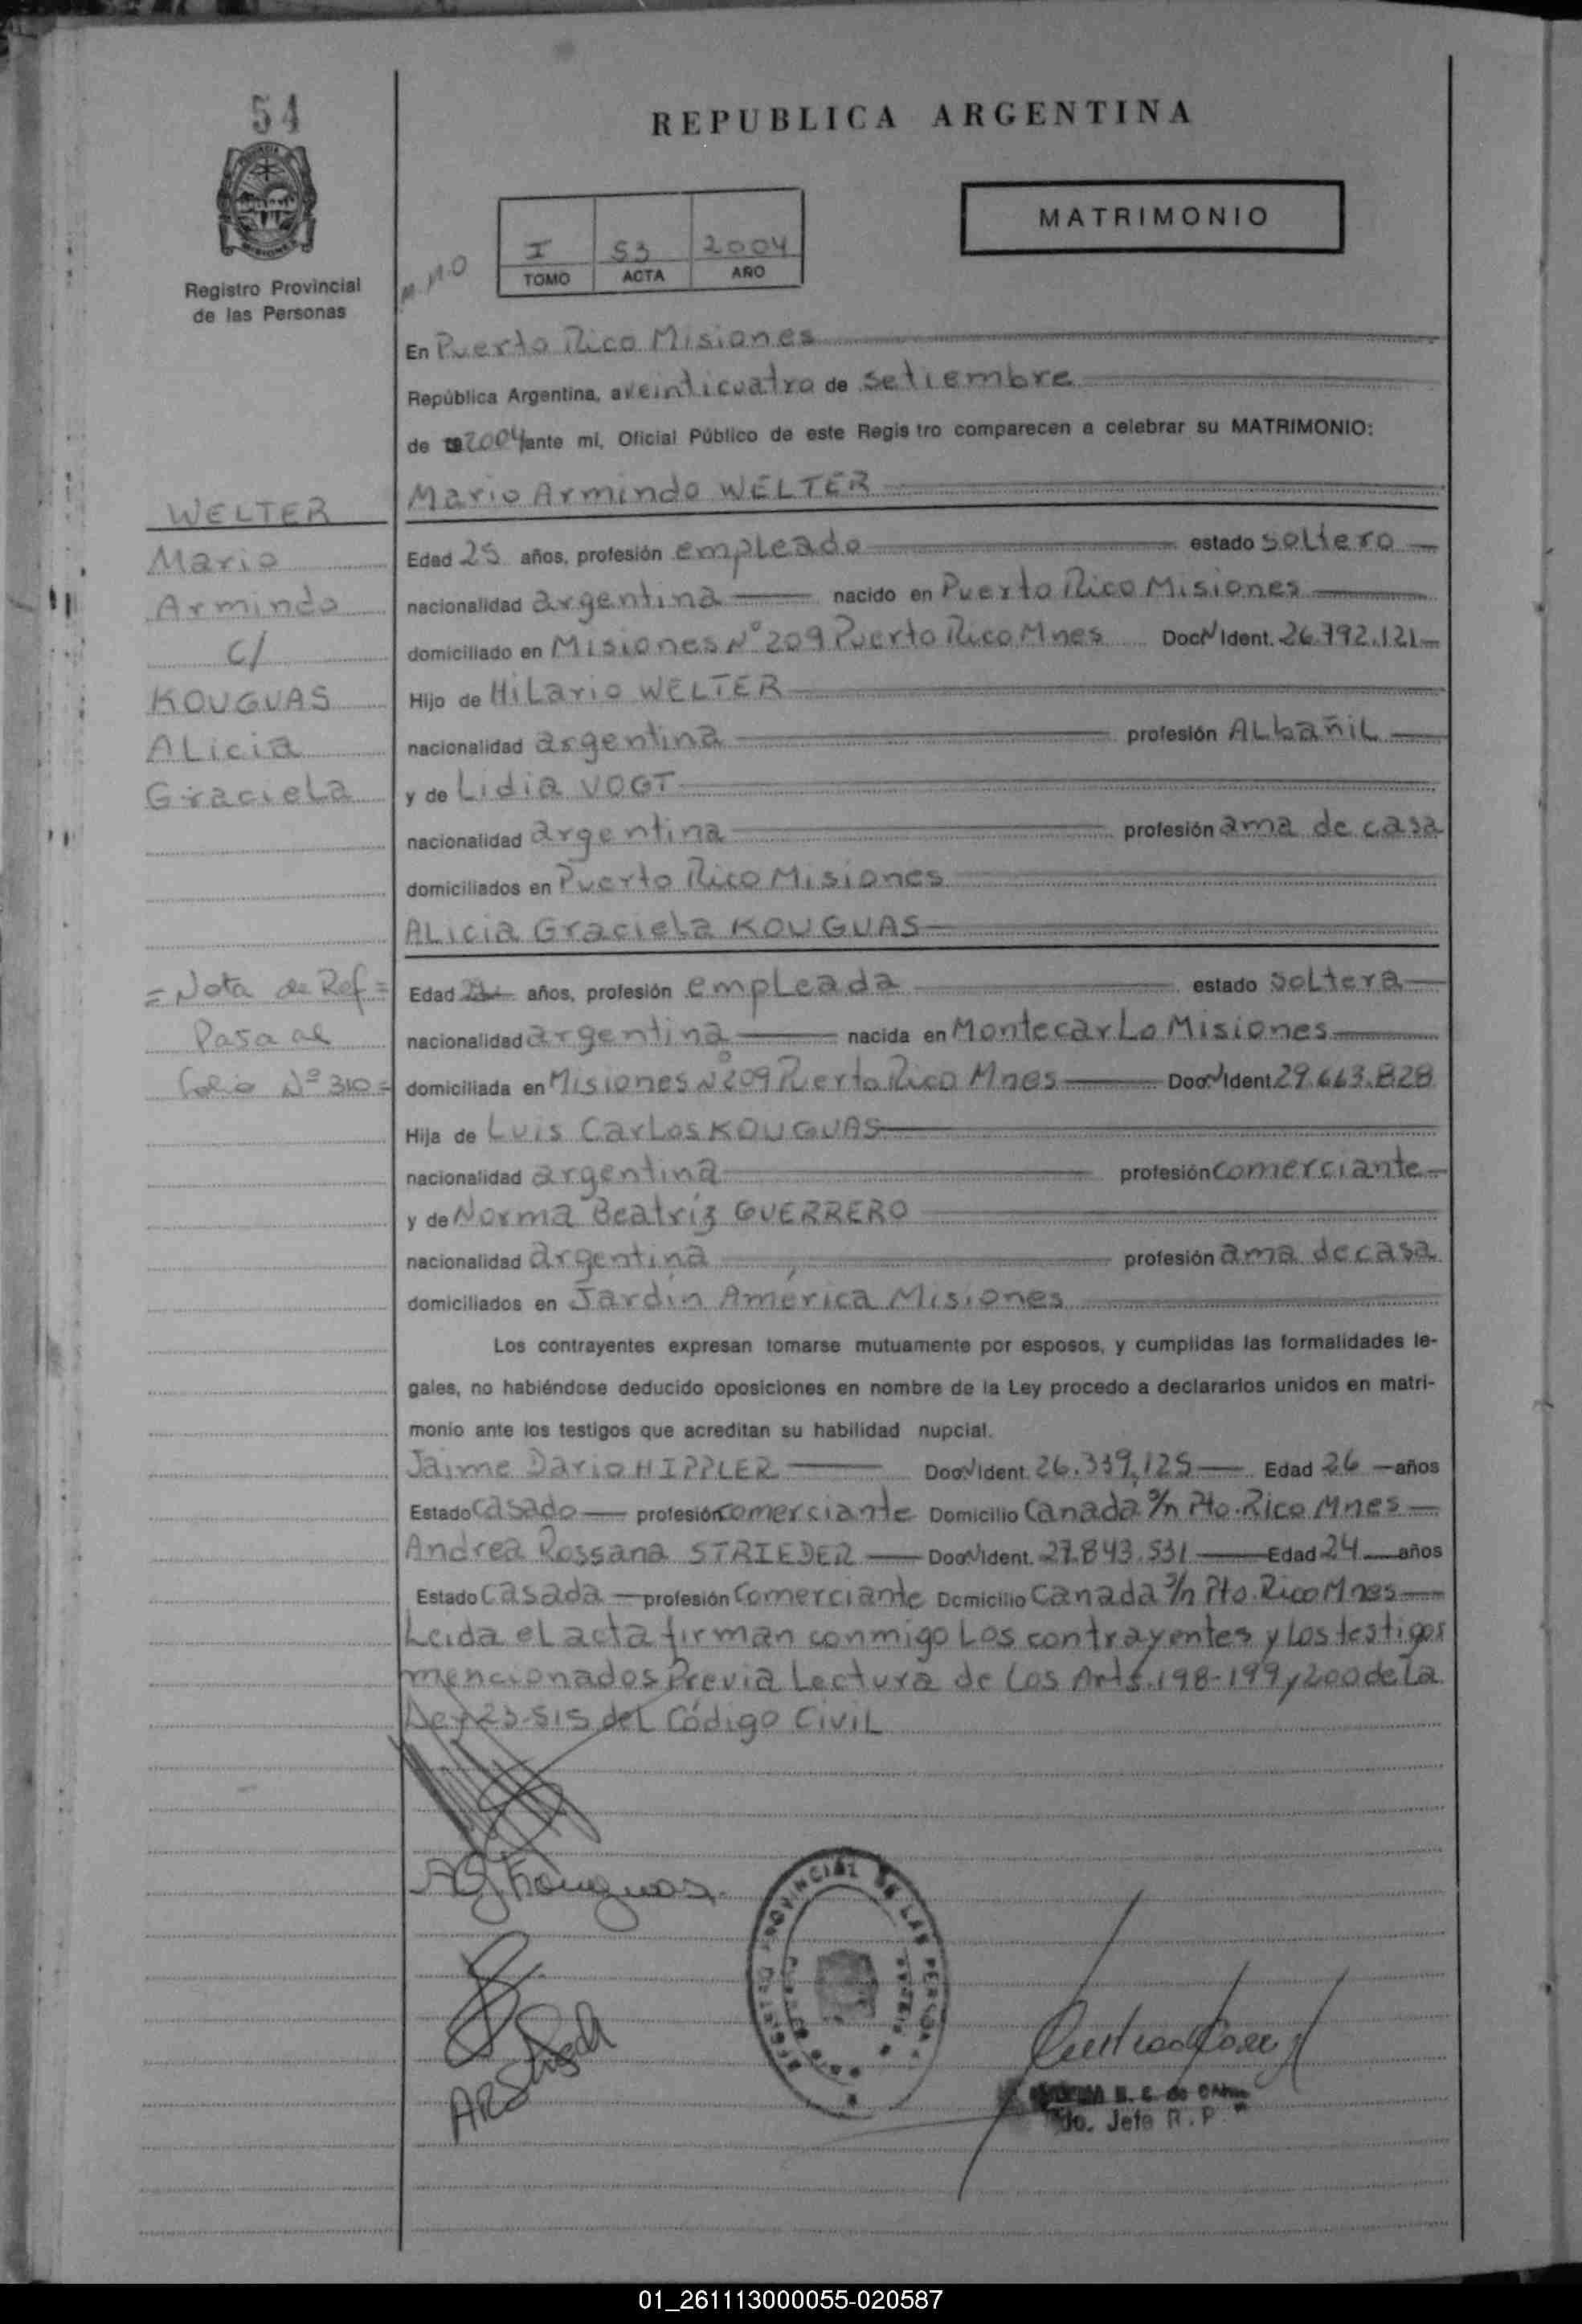 54
REPUBLICA ARGENTINA
MATRIMONIO
I 53 2004
TOMO ACTA AÑO
Registro Provincial
de las Personas
En Puerto Rico Misiones
República Argentina, a veinticuatro de setiembre
de 2004 ante mí, Oficial Público de este Registro comparecen a celebrar su MATRIMONIO:
Mario Armindo WELTER
WELTER
Mario
Armindo
c/
KOUGUAS
ALicia
Graciela
Edad 25 años, profesión empleado estado soltero
nacionalidad argentina nacido en Puerto Rico Misiones
domiciliado en Misiones Nº 209 Puerto Rico Mnes Doc. N Ident. 26.792.121
Hijo de Hilario WELTER
nacionalidad argentina profesión Albañil
y de Lidia VOGT
nacionalidad argentina profesión ama de casa
domiciliados en Puerto Rico Misiones
Alicia Graciela KOUGUAS
= Nota de Ref =
Pasa al
Folio Nº 310 =
Edad años, profesión empleada estado soltera
nacionalidad argentina nacida en Montecarlo Misiones
domiciliada en Misiones Nº 209 Puerto Rico Mnes Doc. N Ident. 29.663.828
Hija de Luis Carlos KOUGUAS
nacionalidad argentina profesión comerciante
y de Norma Beatriz GUERRERO
nacionalidad argentina profesión ama de casa
domiciliados en Jardín América Misiones
Los contrayentes expresan tomarse mutuamente por esposos, y cumplidas las formalidades le-
gales, no habiéndose deducido oposiciones en nombre de la Ley procedo a declararlos unidos en matri-
monio ante los testigos que acreditan su habilidad nupcial.
Jaime Dario HIPPLER Doc. N Ident. 26.339.125 Edad 26 años
Estado casado profesión comerciante Domicilio Canadá s/n Pto. Rico Mnes
Andrea Rossana STRIEDER Doc. N Ident. 27.843.531 Edad 24 años
Estado casada profesión comerciante Domicilio Canadá s/n Pto. Rico Mnes
Leida el acta firman conmigo los contrayentes y los testigos
mencionados Previa Lectura de los Arts. 198-199 y 200 de la
Ley 23.515 del Código Civil
AGKouguas.
REGISTRO PROVINCIAL DE LAS PERSONAS
Jefe R.P.
01_261113000055-020587